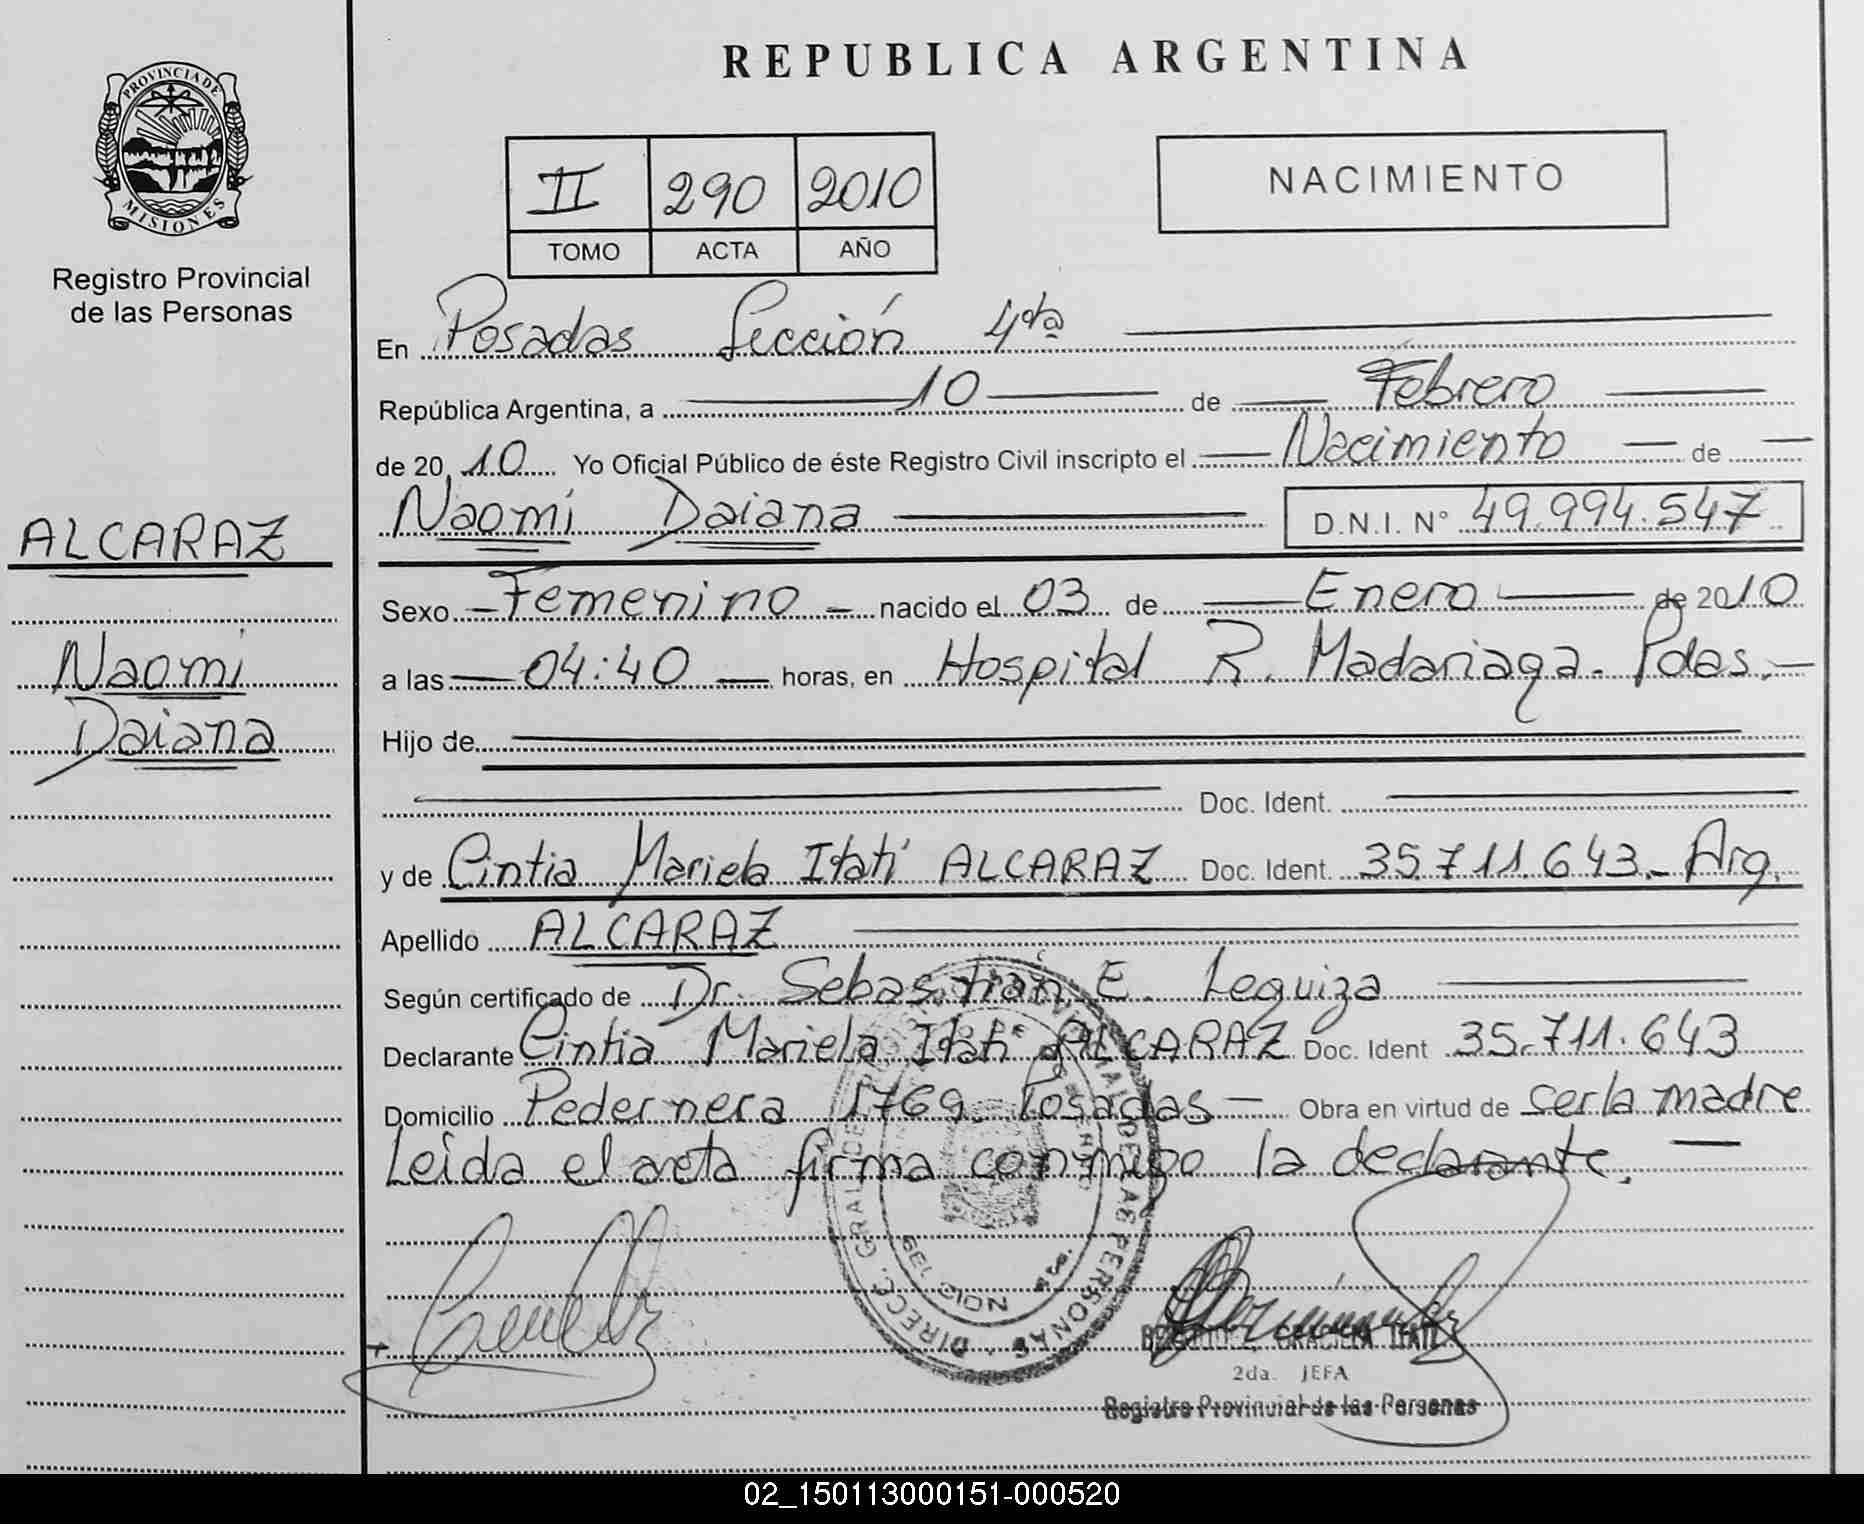 REPUBLICA ARGENTINA
PROVINCIA DE
MISIONES
Registro Provincial
de las Personas
II 290 2010
TOMO ACTA AÑO
NACIMIENTO
En Posadas Sección 4ta
República Argentina, a 10 de Febrero
de 20 10 Yo Oficial Público de éste Registro Civil inscripto el Nacimiento de
Naomi Daiana D.N.I. N° 49.994.547
ALCARAZ
Naomi
Daiana
Sexo Femenino nacido el 03 de Enero de 2010
a las 04:40 horas, en Hospital R. Madariaga - Pdas.
Hijo de
Doc. Ident.
y de Cintia Mariela Itatí ALCARAZ Doc. Ident. 35.711.643.- Arg.
Apellido ALCARAZ
Según certificado de Dr. Sebastián E. Leguiza
Declarante Cintia Mariela Itatí ALCARAZ Doc. Ident 35.711.643
Domicilio Pedernera 1769 Posadas Obra en virtud de ser la madre
Leida el acta firma conmigo la declarante.
GRACIELA ITATI
2da. JEFA
Registro Provincial de las Personas
02_150113000151-000520